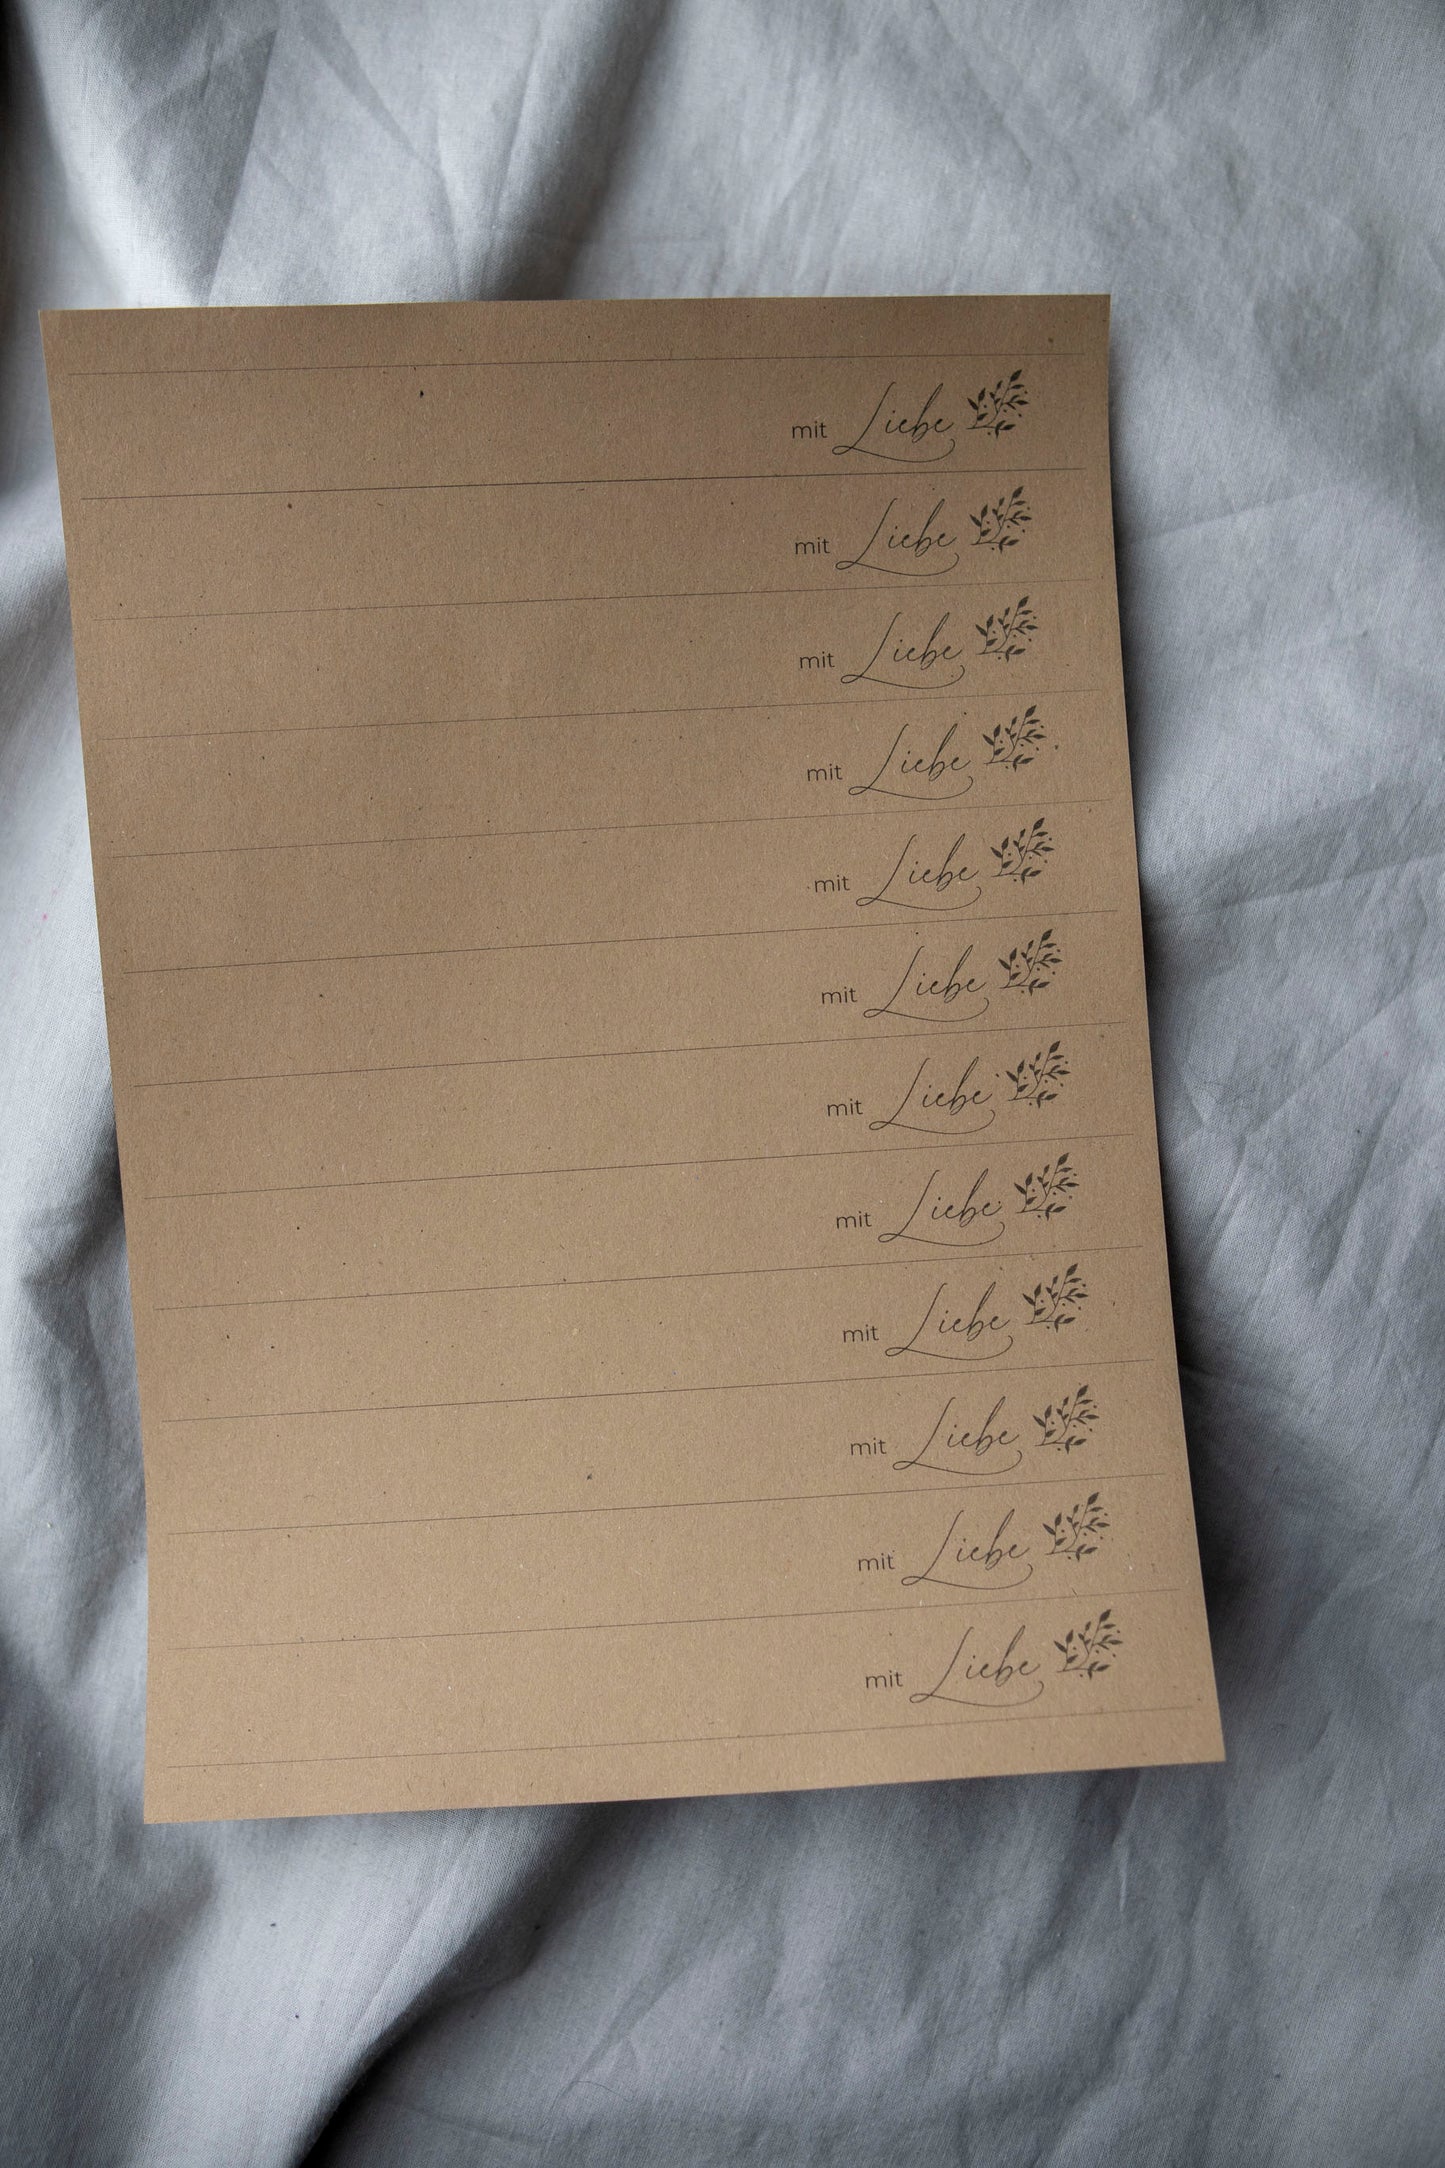 mit Liebe
mit Liebe
mit Liebe
mit Liebe
mit Liebe
mit Liebe
mit Liebe
mit Liebe
mit Liebe
mit Liebe
mit Liebe
mit Liebe